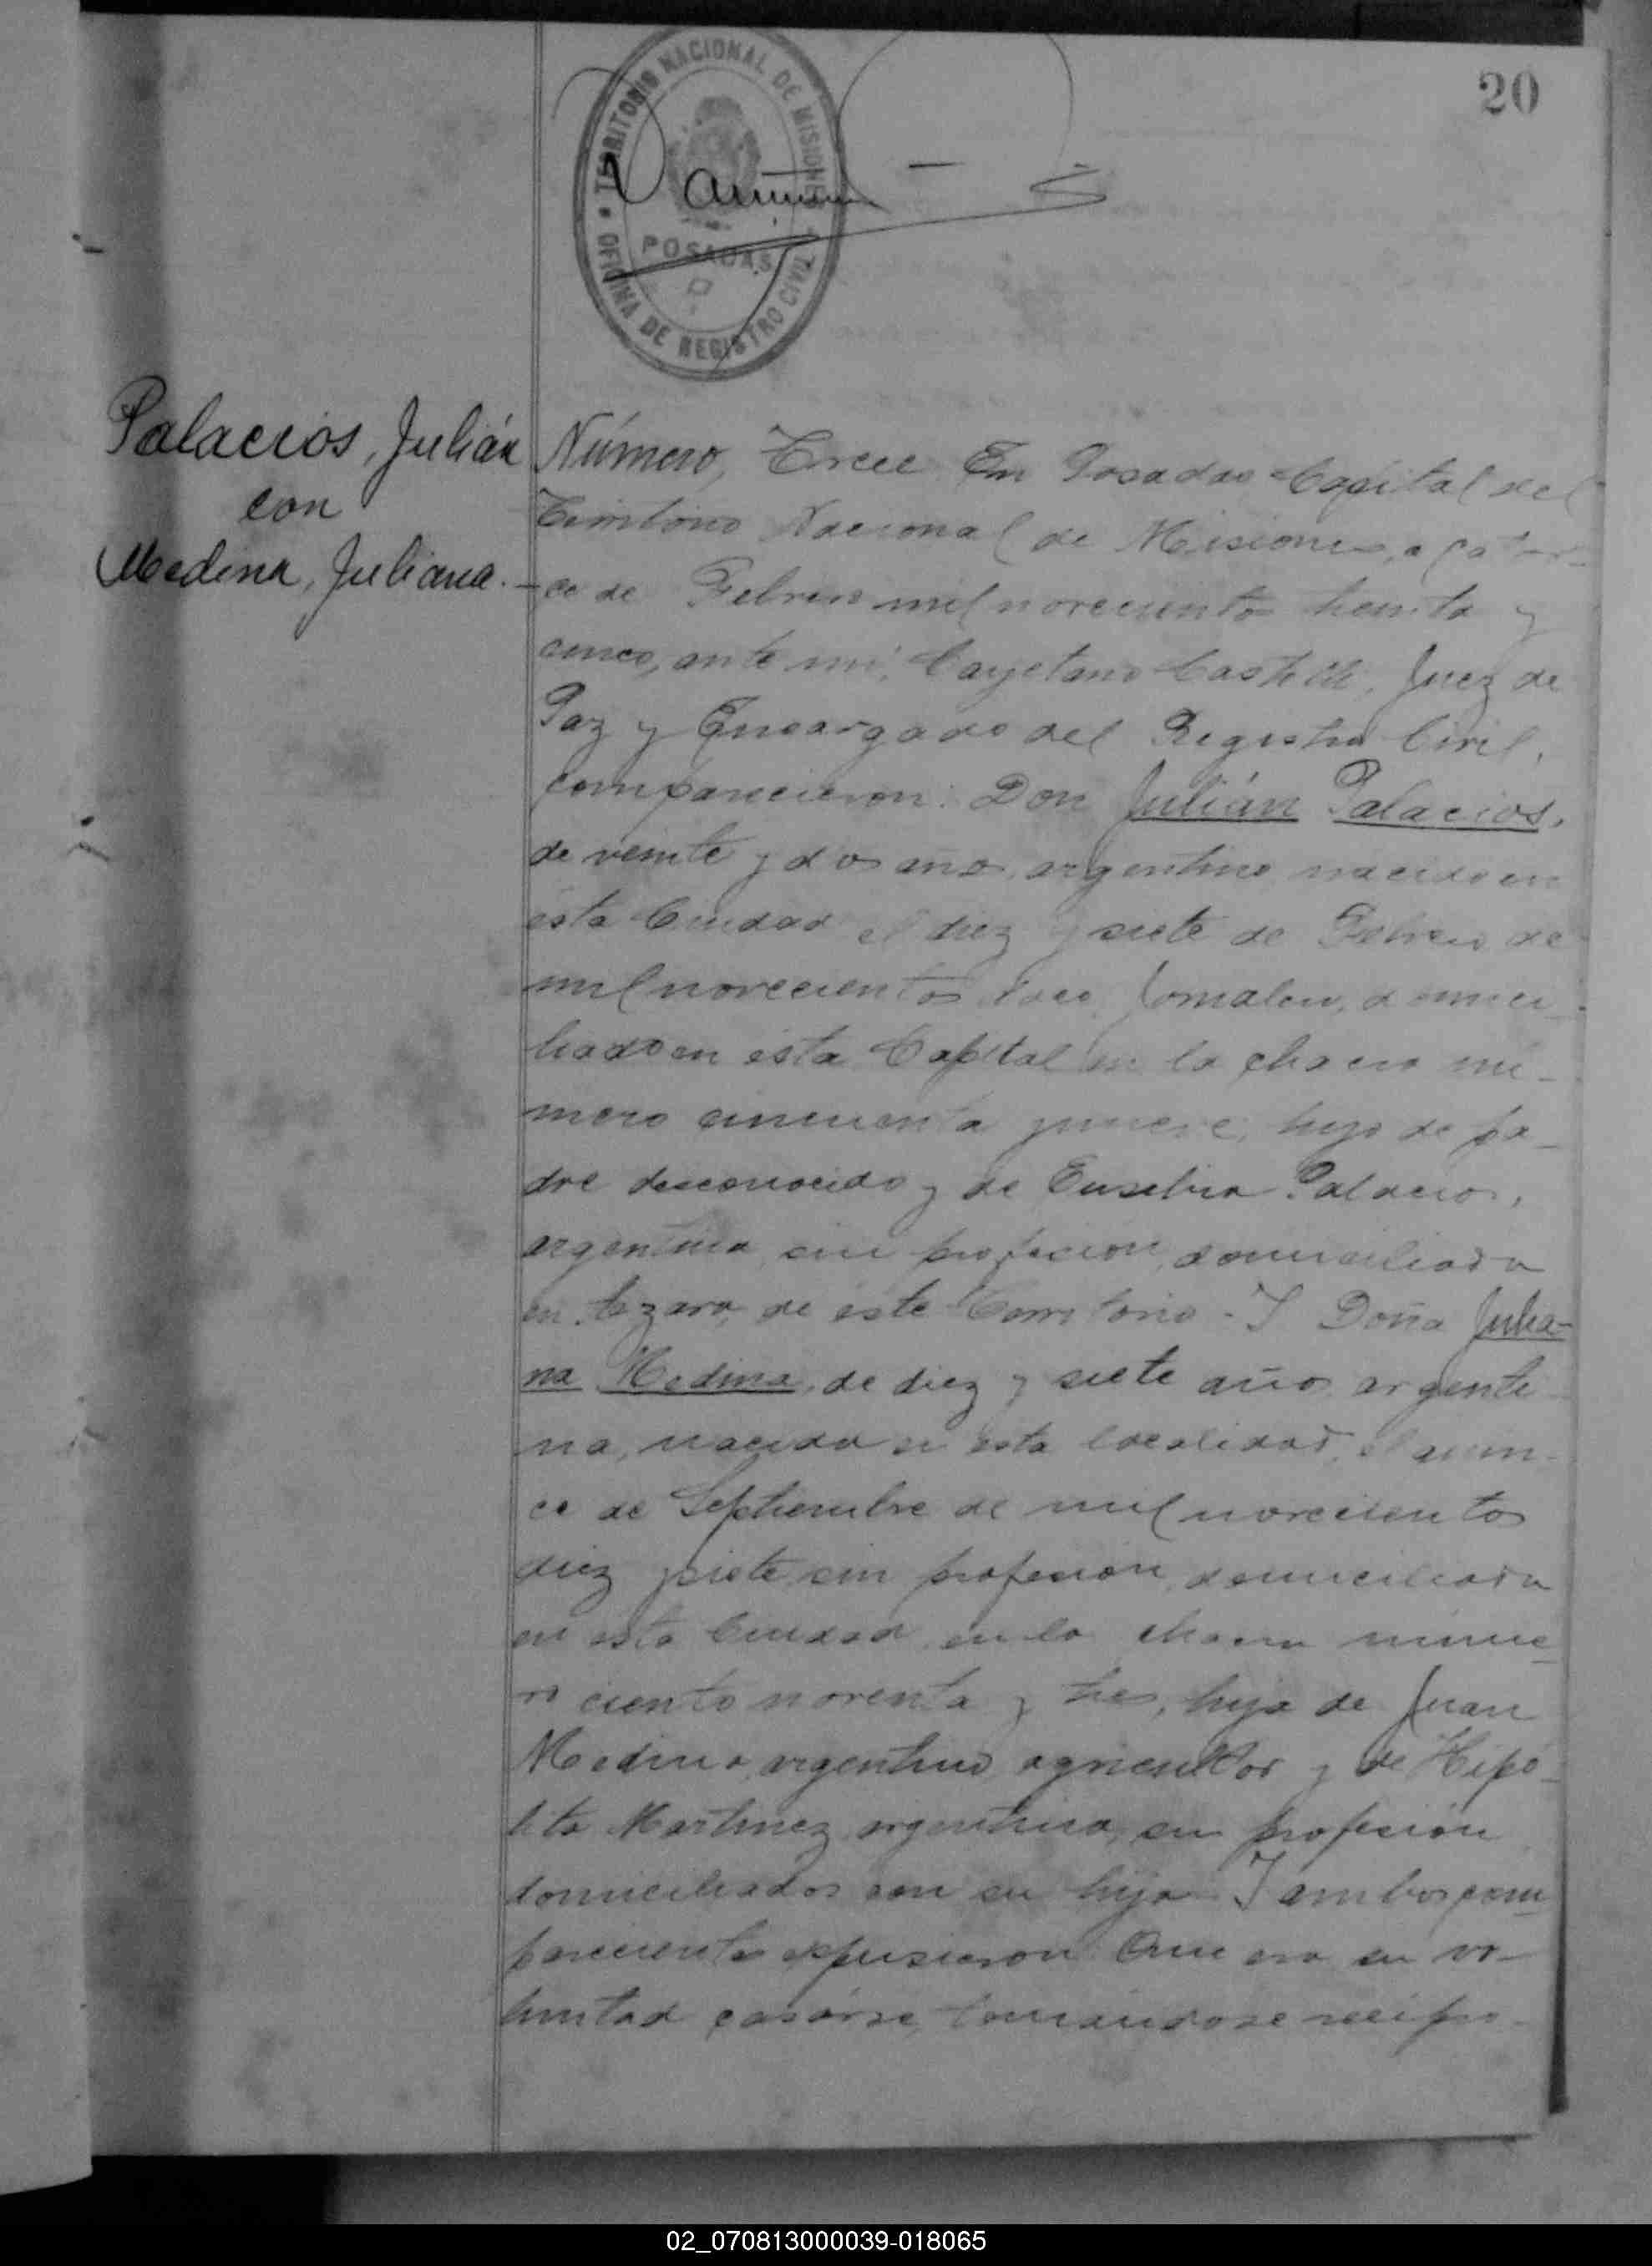 20
TERRITORIO NACIONAL DE MISIONES
POSADAS
OFICINA DE REGISTRO CIVIL
Palacios, Julián
con
Medina, Juliana.-
Número, Trece En Posadas Capital del
Territorio Nacional de Misiones, a cator-
ce de Febrero mil novecientos treinta y
cinco, ante mi, Cayetano Castelli, Juez de
Paz y Encargado del Registro Civil,
comparecieron: Don Julián Palacios,
de veinte y dos años, argentino nacido en
esta Ciudad el diez y siete de Febrero de
mil novecientos doce, Jornalero, domici-
liado en ésta Capital en la chacra nú-
mero cincuenta y nueve, hijo de pa-
dre desconocido y de Eusebia Palacios,
argentina, sin profesión, domiciliada
en Azara, de éste Territorio - Y Doña Julia-
na Medina, de diez y siete años argenti-
na, nacida en esta localidad, el quin-
ce de Septiembre de mil novecientos
diez y siete, sin profesión, domiciliada
en esta Ciudad en la chacra núme-
ro ciento noventa y tres, hija de Juan
Medina, argentino, agricultor y de Hipó-
lita Martinez, argentina, sin profesión
domiciliados con su hija Y ambos com
parecientes expusieron Que era su vo-
luntad casarse, tomándose recípro-
02_070813000039-018065